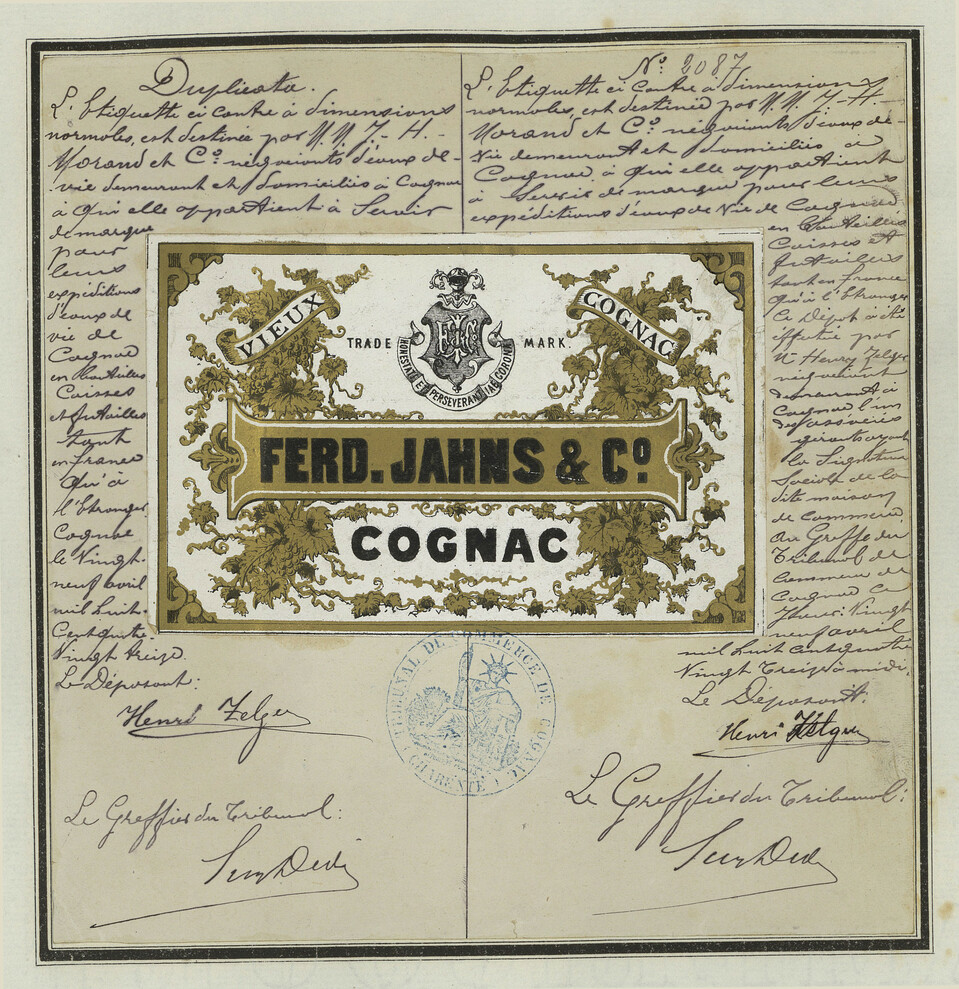 Duplicata.
L'Etiquette ci contre à dimensions
normales, est destinée par M.M. J.-H.-
Morand et Cº négociants d'eaux de-
vie demeurant et domiciliés à Cognac
à qui elle appartient à Servir
de marque
pour
leurs
expéditions
d'eaux de
vie de
Cognac
en Bouteilles
Caisses
et futailles
tant
en France
qu'à
l'Etranger
Cognac
le Vingt-
neuf avril
mil huit-
Cent quatre-
Vingt treize.
Le Déposant:
Henri Zelger
Le Greffier du Tribunal:
Nº 2087
L'Etiquette ci contre à dimensions
normales, est destinée par M.M. J.-H.-
Morand et Cº négociants d'eaux de-
Vie demeurant et domiciliés à
Cognac, à qui elle appartient
à Servir de marque pour leurs
expéditions d'eaux de Vie de Cognac
en Bouteilles
Caisses et
futailles
tant en France
qu'à l'Etranger
Ce Dépôt a été
effectué par
Mr Henry Zelger
négociant
demeurant à
Cognac l'un
des associés
gérants ayant
la Signature
Sociale de la
dite maison
de commerce.
Au Greffe du
Tribunal de
Commerce de
Cognac ce
Jour: Vingt
neuf avril
mil huit cent quatre
Vingt treize à midi.
Le Déposant.
Henri Zelger
Le Greffier du Tribunal:
VIEUX
COGNAC
TRADE MARK.
HONESTATE ET PERSEVERANTIAE CORONA
FERD. JAHNS & Cº
COGNAC
TRIBUNAL DE COMMERCE DE COGNAC
CHARENTE